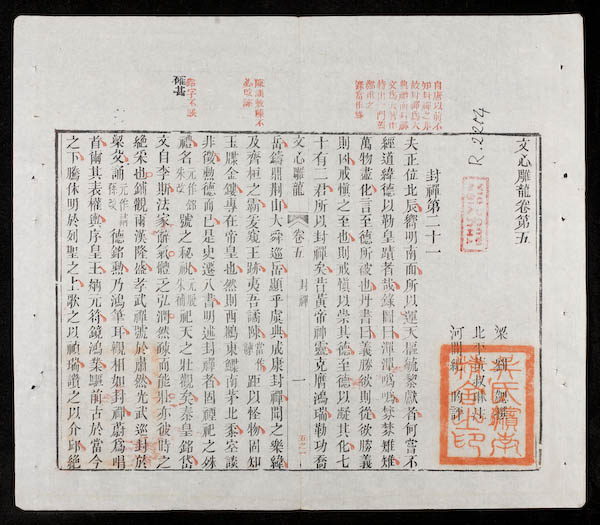 文心雕龍卷第五
梁劉勰撰
北平黃叔琳註
河間紀昀評
封禪第二十一
夫正位北辰嚮明南面所以運天樞毓黎獻者何嘗不
經道緯德以勒皇蹟者哉錄圖曰潬潬噅噅棼棼雉雉
萬物盡化言至德所被也丹書曰義勝欲則從欲勝義
則凶戒慎之至也則戒慎以崇其德至德以凝其化七
十有二君所以封禪矣昔黃帝神靈克膺鴻瑞勒功喬
岳鑄鼎荆山大舜巡岳顯乎虞典成康封禪聞之樂緯
及齊桓之霸爰窺王跡夷吾譎陳距以怪物固知
玉牒金鏤專在帝皇也然則西鶼東鰈南茅北黍空談
非徵勳德而已是史遷八書明述封禪者固禋祀之殊
禮名號之秘祝祀天之壯觀矣秦皇銘岱
文自李斯法家辭氣體乏弘潤然疎而能壯亦彼時之
絕采也鋪觀兩漢隆盛孝武禪號於肅然光武巡封於
梁父誦德銘勳乃鴻筆耳觀相如封禪蔚爲唱
首爾其表權輿序皇王炳元符鏡鴻業驅前古於當今
之下騰休明於列聖之上歌之以禎瑞讚之以介邱絕
文心雕龍
卷五
封禪
一
R.2204